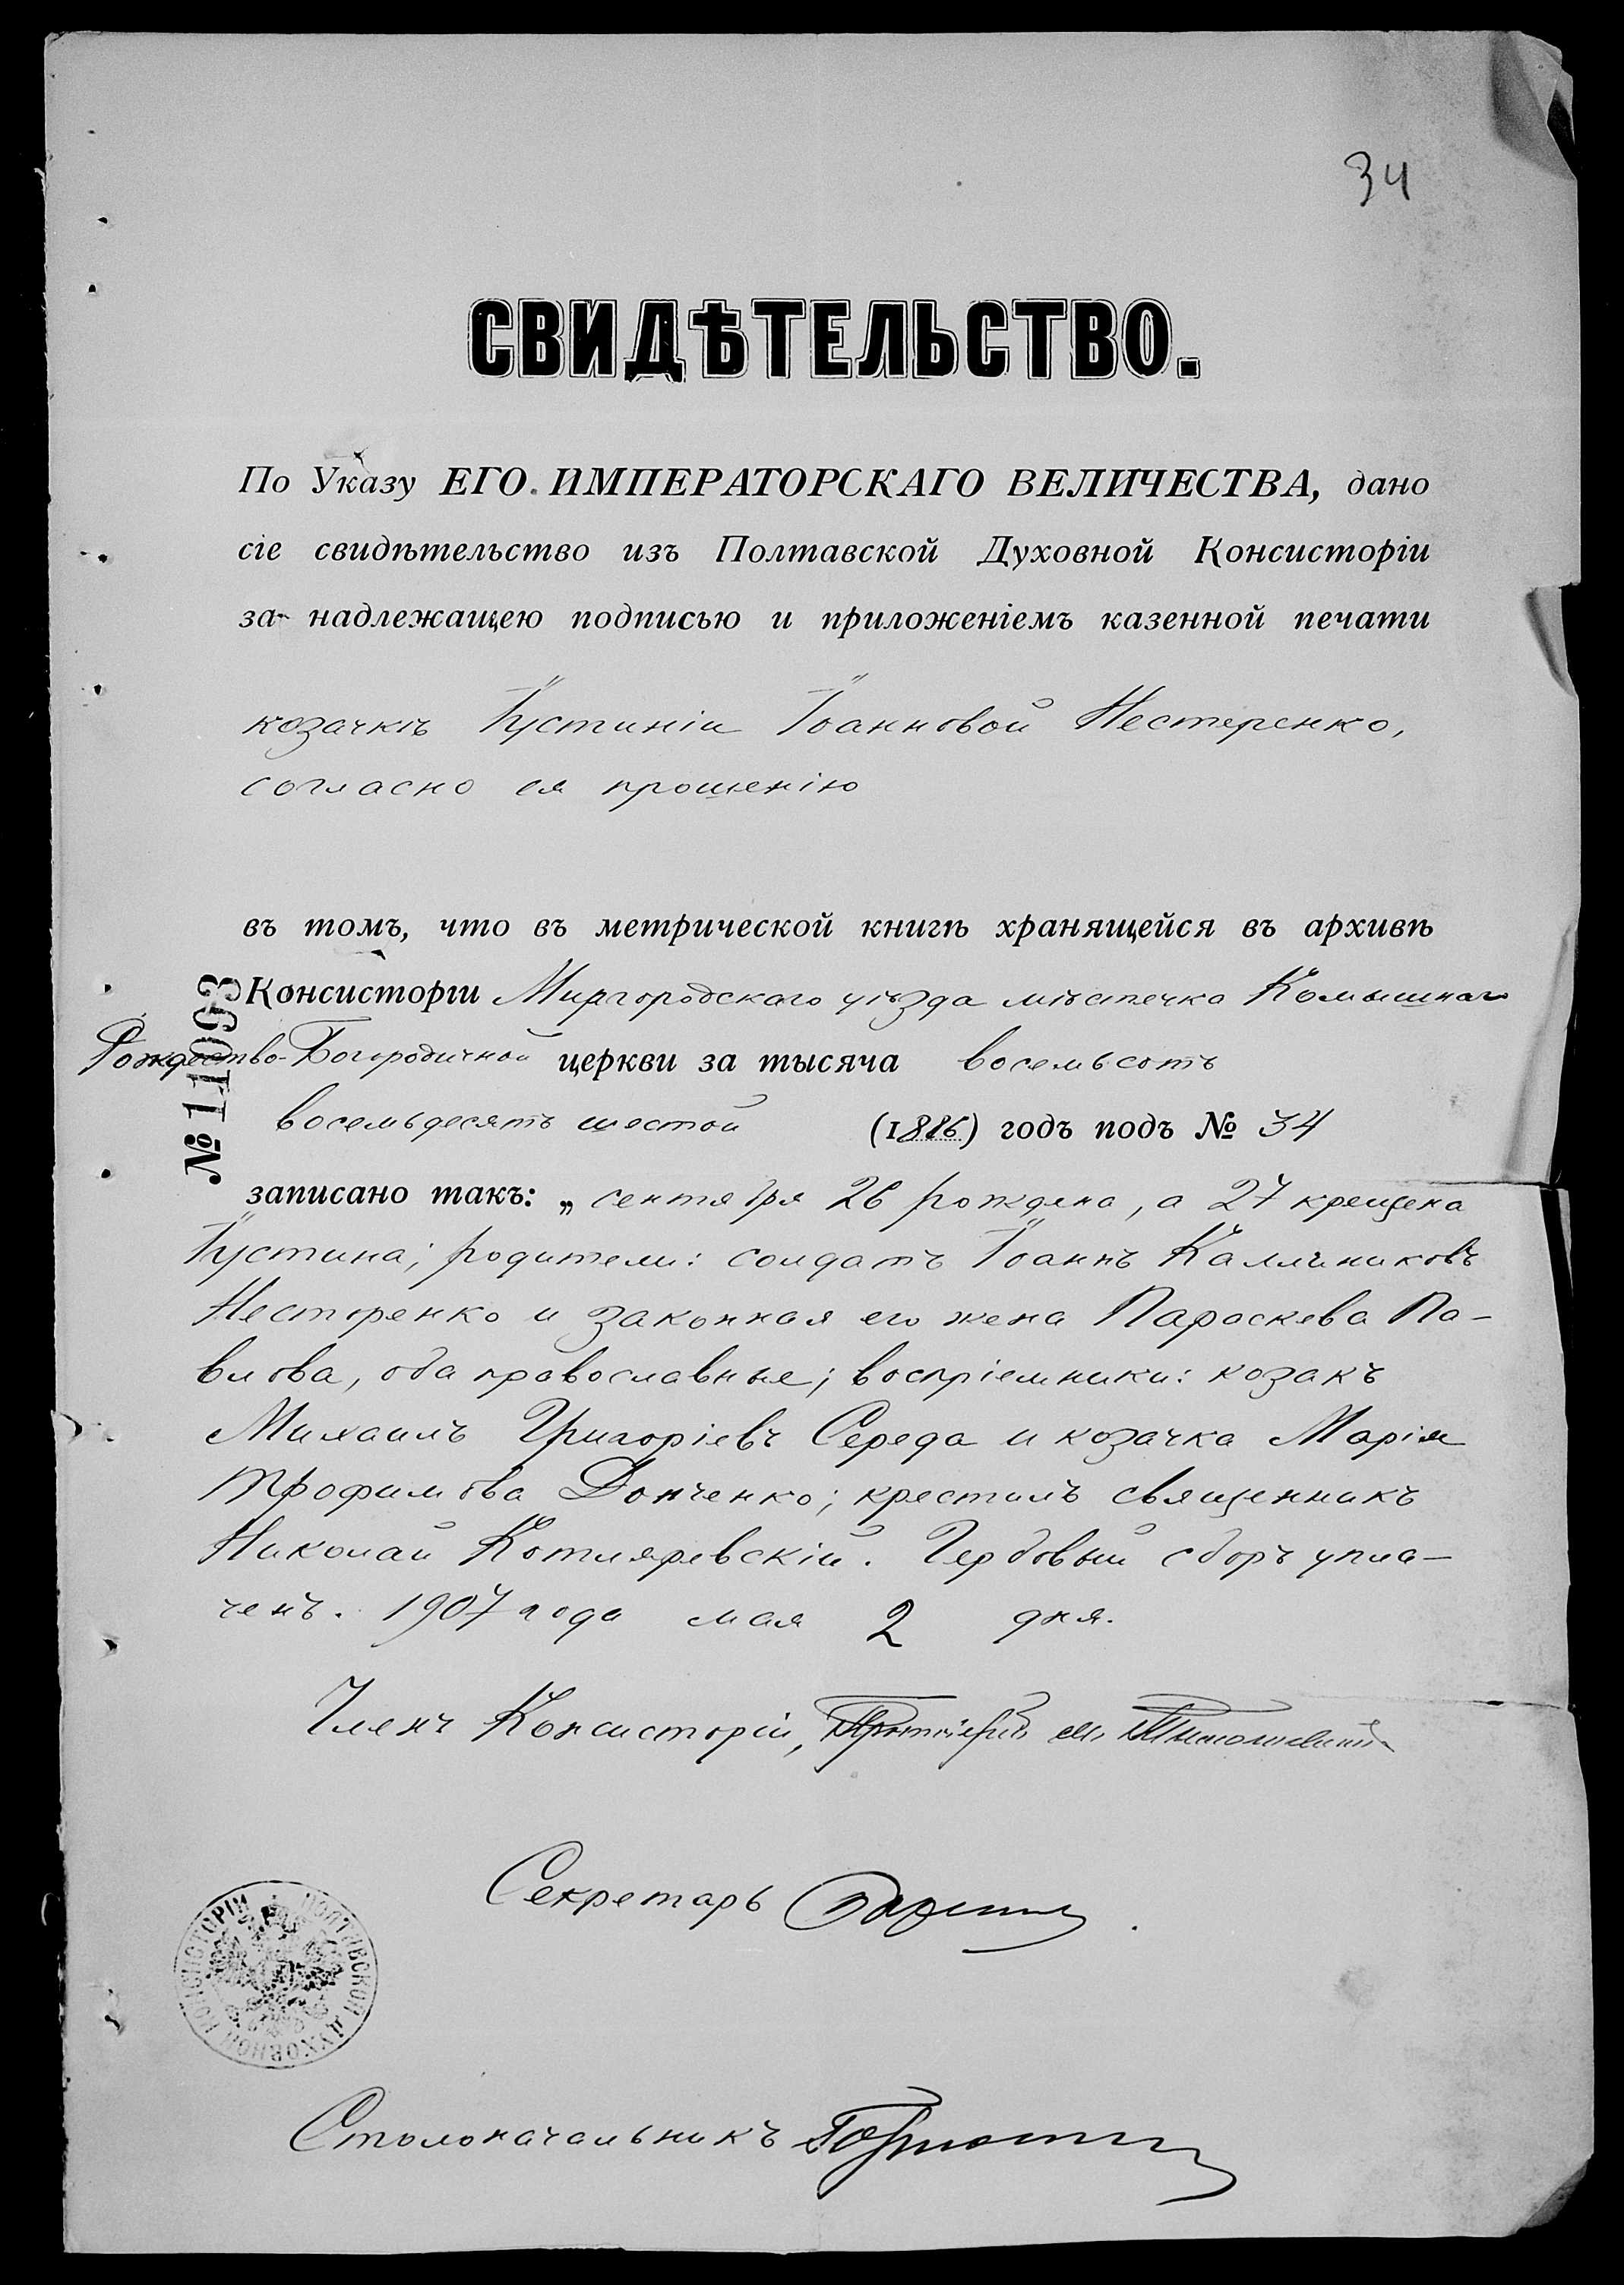 34
СВИДѢТЕЛЬСТВО.
По Указу ЕГО ИМПЕРАТОРСКАГО ВЕЛИЧЕСТВА, дано
сіе свидѣтельство изъ Полтавской Духовной Консисторіи
за надлежащею подписью и приложеніемъ казенной печати
козачкѣ Іустиніи Іоанновой Нестеренко,
согласно ея прошенію
въ томъ, что въ метрической книгѣ хранящейся въ архивѣ
Консисторіи Миргородскаго уѣзда мѣстечка Комышнаго
Рождество-Богородичной церкви за тысяча восемьсотъ
восемьдесятъ шестой (1886) годъ подъ № 34
№ 11093
записано такъ: „сентября 26 рождена, а 27 крещена
Іустина; родители: солдатъ Іоаннъ Калениковъ
Нестеренко и законная его жена Параскева Па-
влова, оба православные; воспріемники: козакъ
Михаилъ Григоріевъ Середа и козачка Марія
Трофимова Донченко; крестилъ священникъ
Николай Котляревскій. Гербовый сборъ упла-
ченъ. 1907 года мая 2 дня.
Членъ Консисторіи, Протоіерей
Секретарь
ПОЛТАВСКОЙ ДУХОВНОЙ КОНСИСТОРІИ
Столоначальникъ